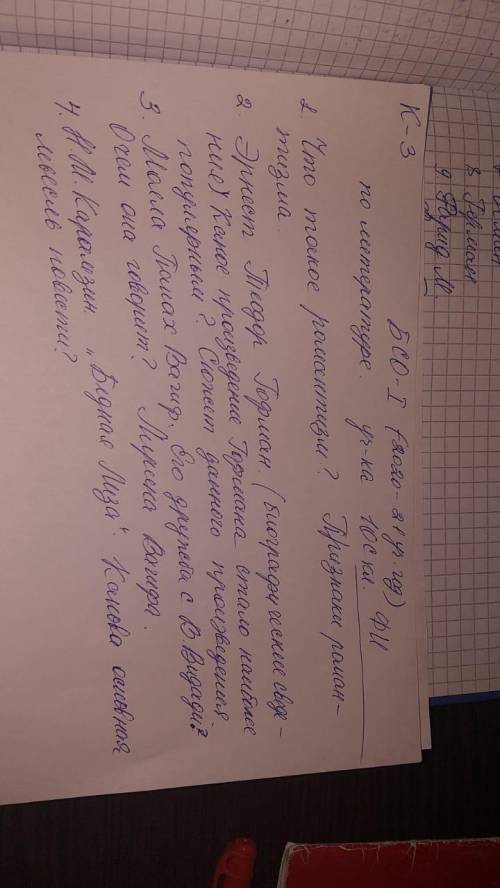 8 Герман
9 Фарид М.
К-3 БСО-I (2020-21 уч. год)
по литературе. уч-ка 10 с кл. ФИ
1. Что такое романтизм? Признаки роман-
тизма.
2. Эрнест Теодор Гофман. (Биографические сведе-
ния) Какое произведение Гофмана стало наиболее
популярным? Сюжет данного произведения
3. Молла Панах Вагиф. Его дружба с В. Видади?
О чем она говорит? Лирика Вагифа.
4. Н. М. Карамзин „Бедная Лиза“. Какова основная
мысль повести?